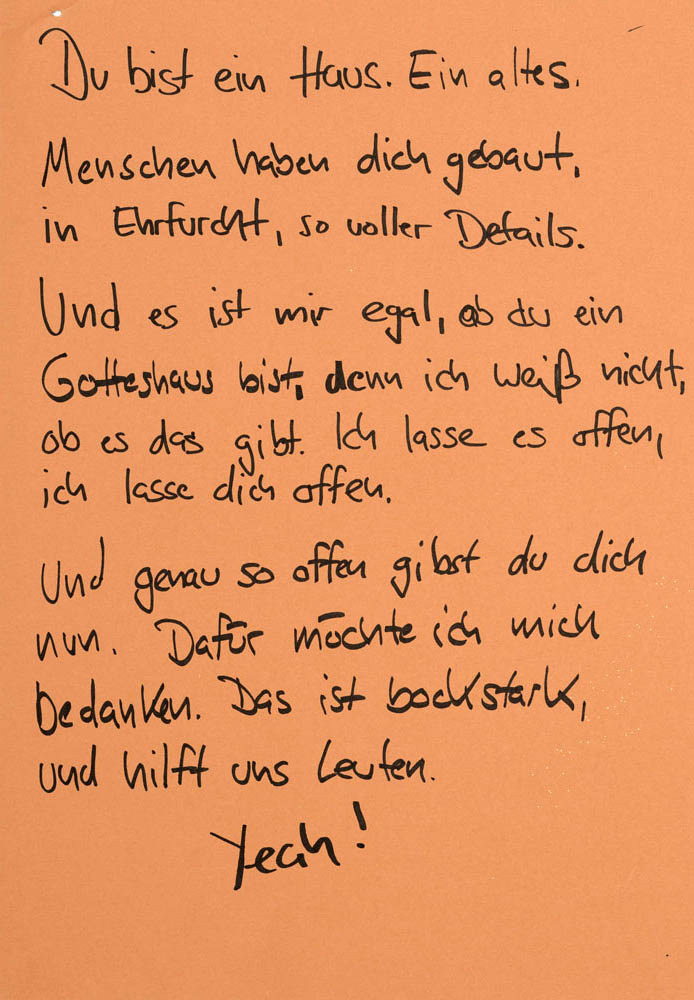 Du bist ein Haus. Ein altes.
Menschen haben dich gebaut,
in Ehrfurcht, so voller Details.
Und es ist mir egal, ob du ein
Gotteshaus bist, denn ich weiß nicht,
ob es das gibt. Ich lasse es offen,
ich lasse dich offen.
Und genau so offen gibst du dich
nun. Dafür möchte ich mich
bedanken. Das ist bockstark,
und hilft uns Leuten.
Yeah!